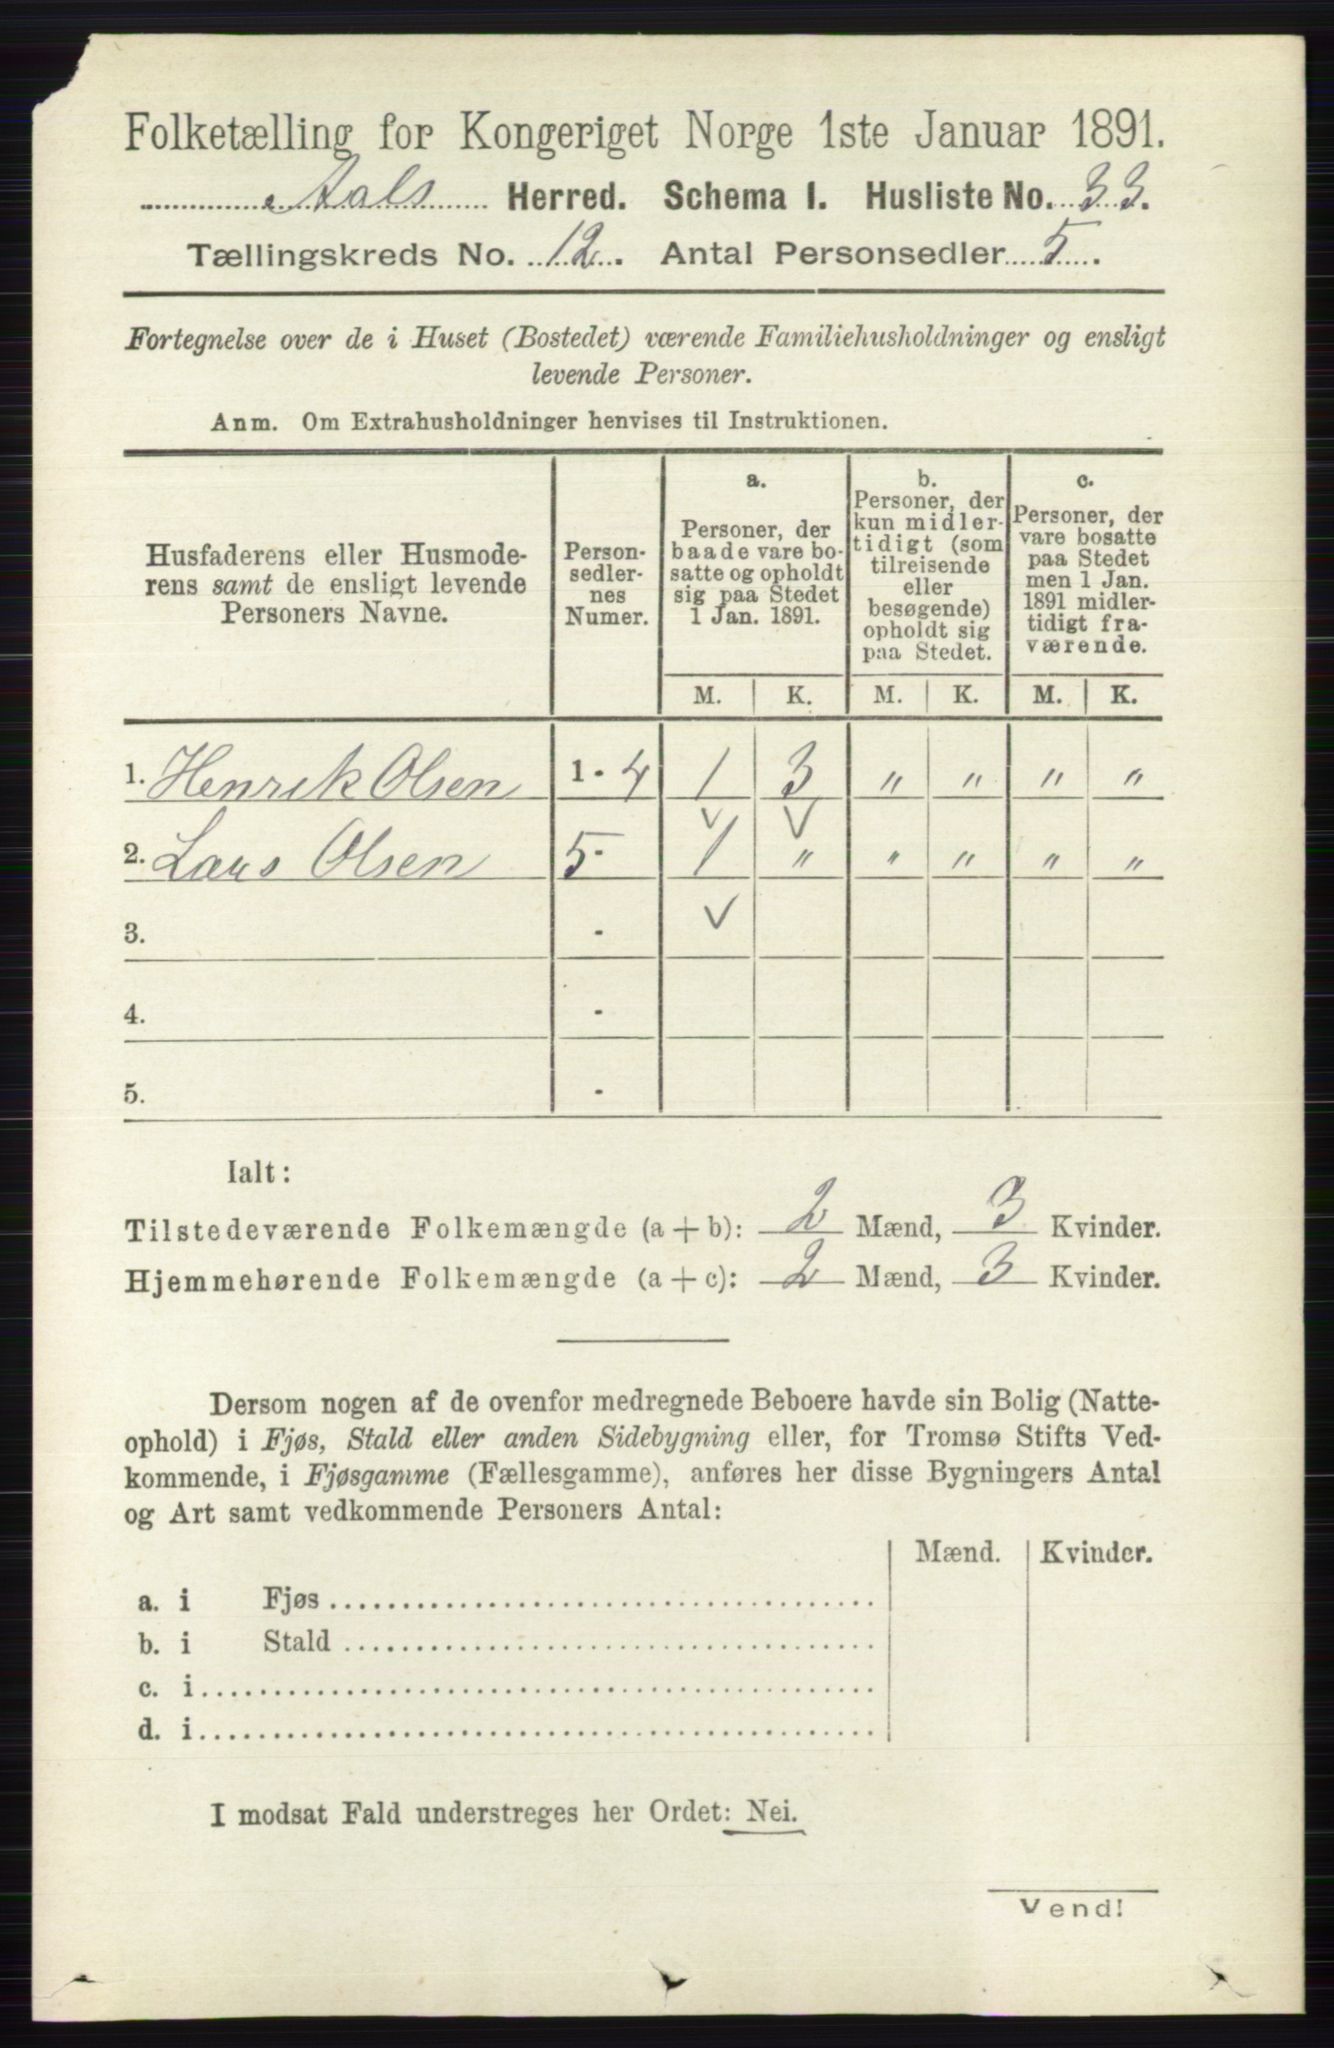 Folketælling for Kongeriget Norge 1ste Januar 1891.
Aals Herred. Schema I. Husliste No. 33.
Tællingskreds No. 12. Antal Personsedler 5.
Fortegnelse over de i Huset (Bostedet) værende Familiehusholdninger og ensligt
levende Personer.
Anm. Om Extrahusholdninger henvises til Instruktionen.
Husfaderens eller Husmode-
rens samt de ensligt levende
Personers Navne.
Person-
sedler-
nes
Numer.
a.
Personer, der
baade vare bo-
satte og opholdt
sig paa Stedet
1 Jan. 1891.
b.
Personer, der
kun midler-
tidigt (som
tilreisende
eller
besøgende)
opholdt sig
paa Stedet.
c.
Personer, der
vare bosatte
paa Stedet
men 1 Jan.
1891 midler-
tidigt fra-
værende.
M. K. M. K. M. K.
1. Henrik Olsen 1 - 4 1 3 " " " "
2. Lars Olsen 5 - 1 " " " " "
3. -
4. -
5. -
Ialt:
Tilstedeværende Folkemængde (a + b): 2 Mænd, 3 Kvinder.
Hjemmehørende Folkemængde (a + c): 2 Mænd, 3 Kvinder.
Dersom nogen af de ovenfor medregnede Beboere havde sin Bolig (Natte-
ophold) i Fjøs, Stald eller anden Sidebygning eller, for Tromsø Stifts Ved-
kommende, i Fjøsgamme (Fællesgamme), anføres her disse Bygningers Antal
og Art samt vedkommende Personers Antal:
Mænd. Kvinder.
a. i Fjøs
b. i Stald
c. i
d. i
I modsat Fald understreges her Ordet: Nei.
Vend!